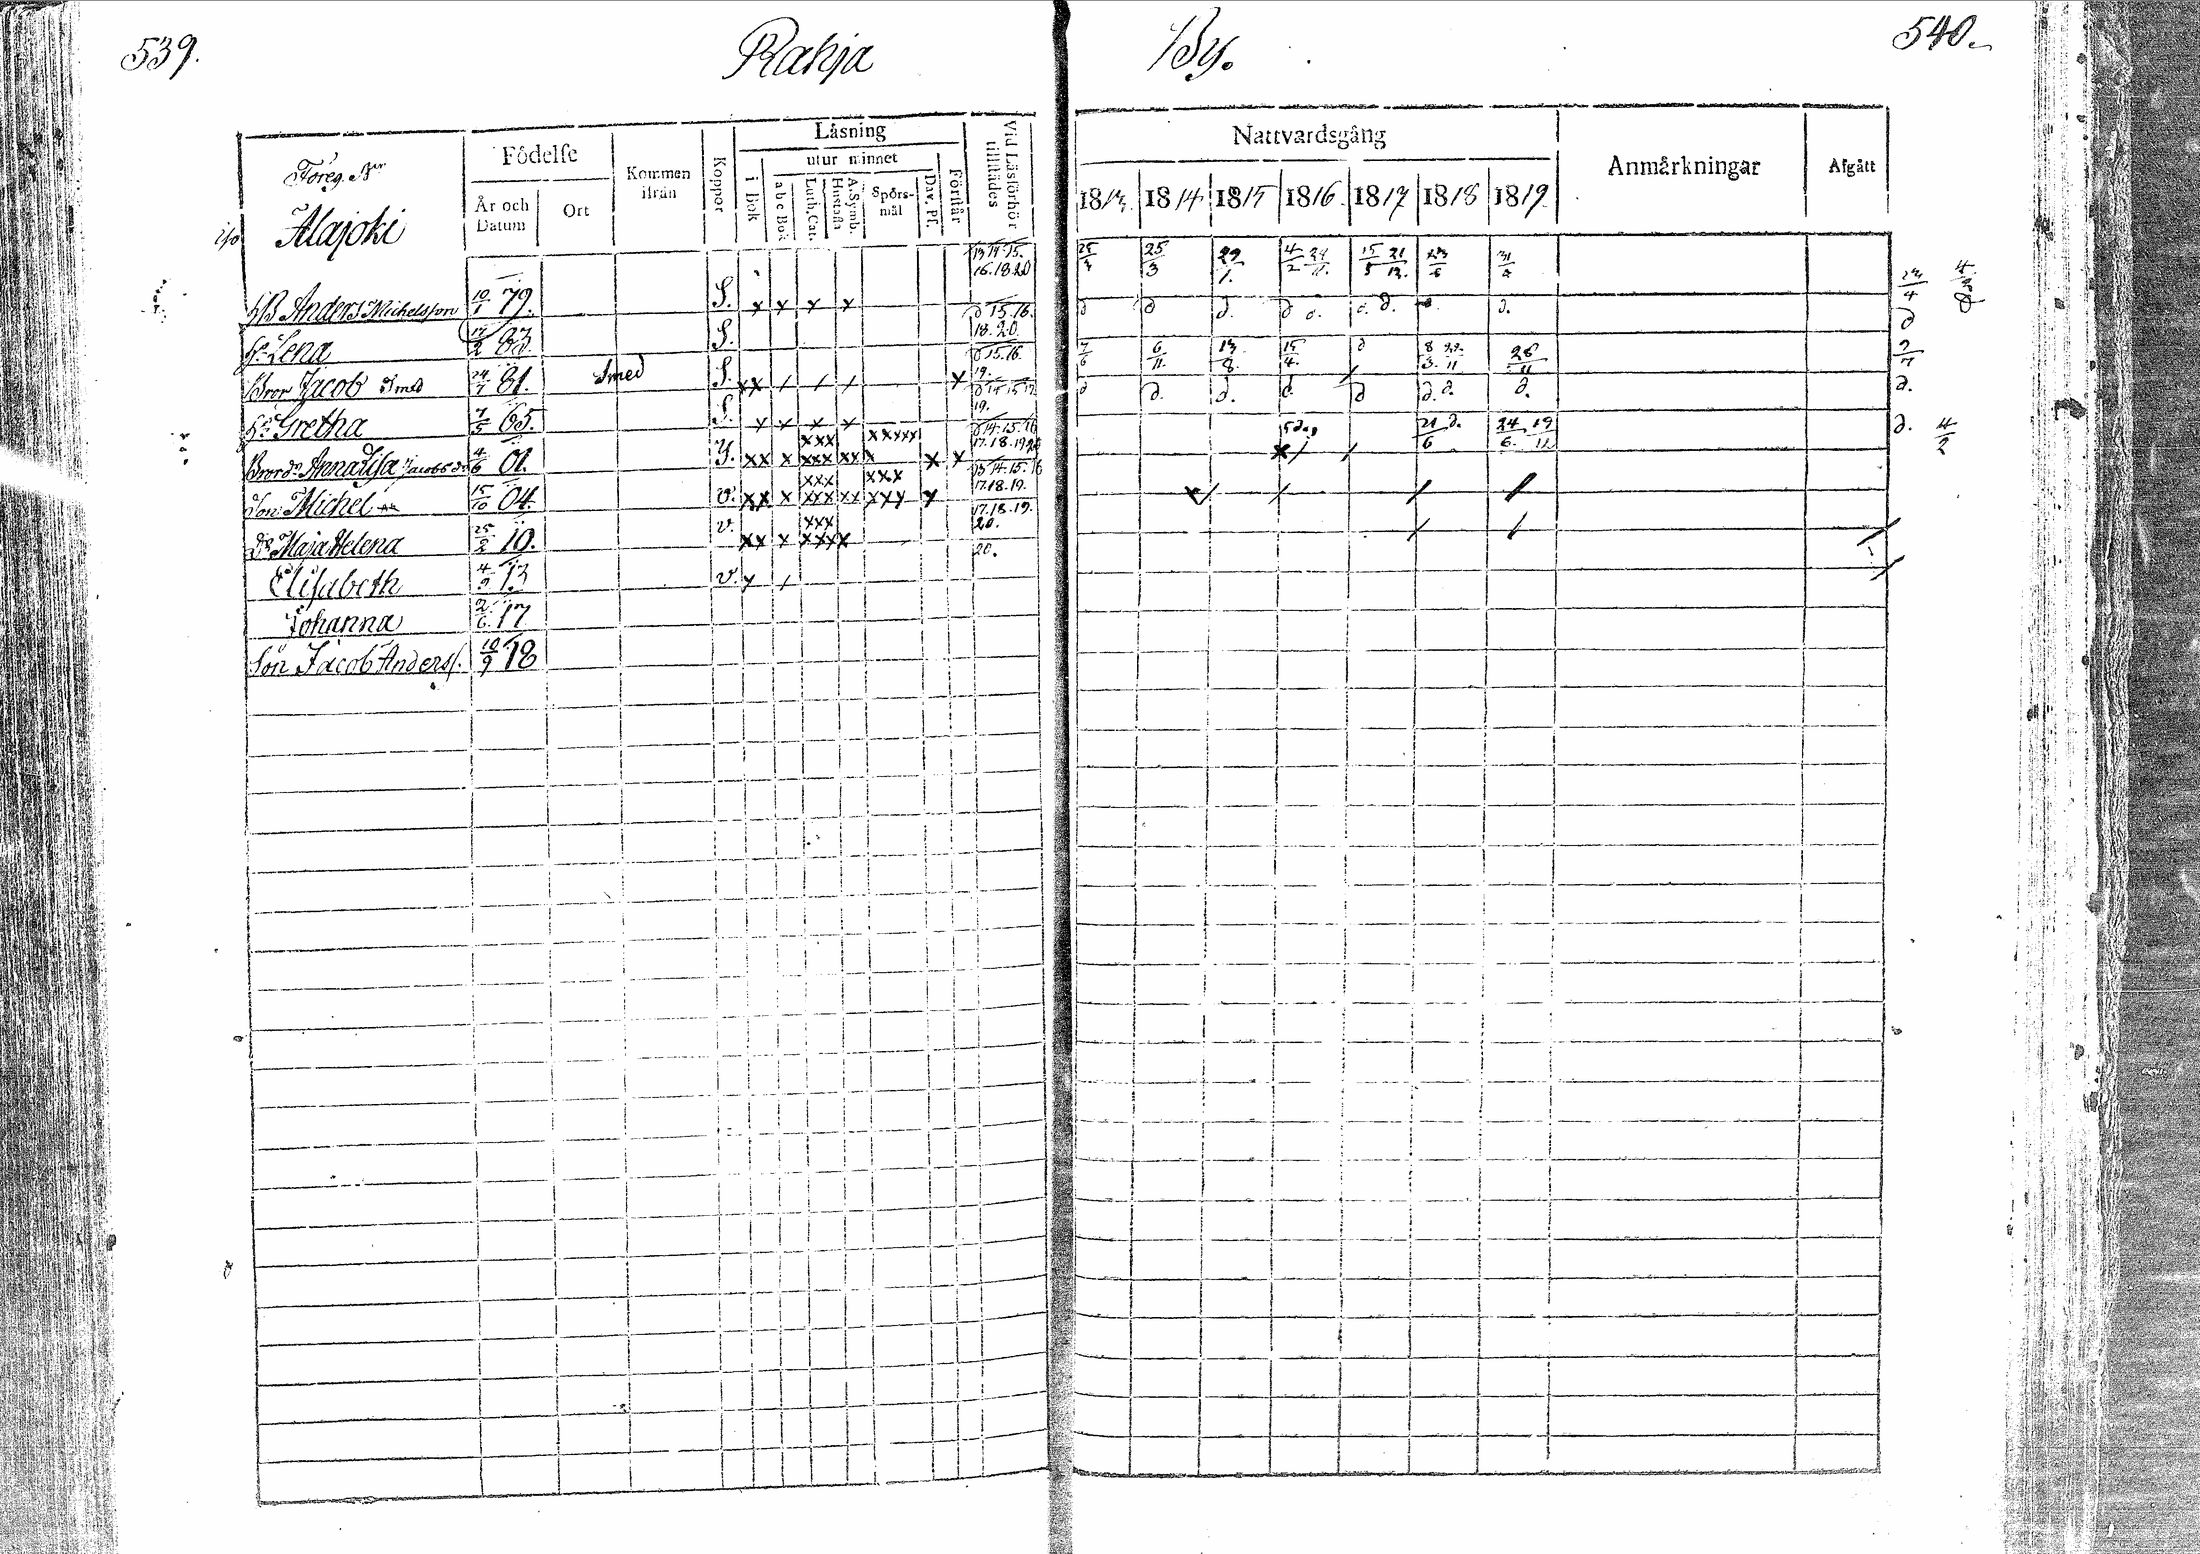 539.
Rahja
By.
540.
Föreg. Nr
Alajoki
Födelse
År och Datum
Ort
Kommen ifrån
Koppor
Läsning
i Bok
utur minnet
abc Bok
Luth. Cat.
Hustafla
A. Symb.
Spörsmål
Dav. Ps.
Förstår
Vid Läsförhör tillstädes
Nattvardsgång
1813. 1814 1815 1816. 1817 1818 1819
Anmärkningar
Afgått
Anders Michelsson 10/1 79. S. x x x x 13 14. 15. 16. 18. 20 25/3 25/3 29/1. 15/5 21/12.
Hu Lena 83. S. d 15. 16. 18. 20. d d d. d d. d. d. d.
Bror Jacob Smed 24/7 81. Smed S. xx / / / x d 15. 16. 19. 6/11. 13/8. 15/4. d 8/3. 22/11 28/11
Hu Gretha 7/5 65. S. x x x x 19. d d. d. d. d d. d. d.
Brordr Anna Lisa Jacobs dr 4/6 01. xx x xxx xxx xx x xxxxx x x d 14. 15. 16 17. 18. 19 20 x/ / 21/6 d. 24/6. 19/11
Son Michel 15/10 04. v. xx x xxx xxx xx xxx xxx x 13 14. 15. 16 17. 18. 19. x/ / / /
Dr Maja Helena 25/2 10. v. xx x xxx xxxx 17. 18. 19. 20. / /
Elisabeth 13 v. x / 20.
Johanna 2/6. 17
Son Jacob Anderss. 10/9 18
d
d.
d. 4/2